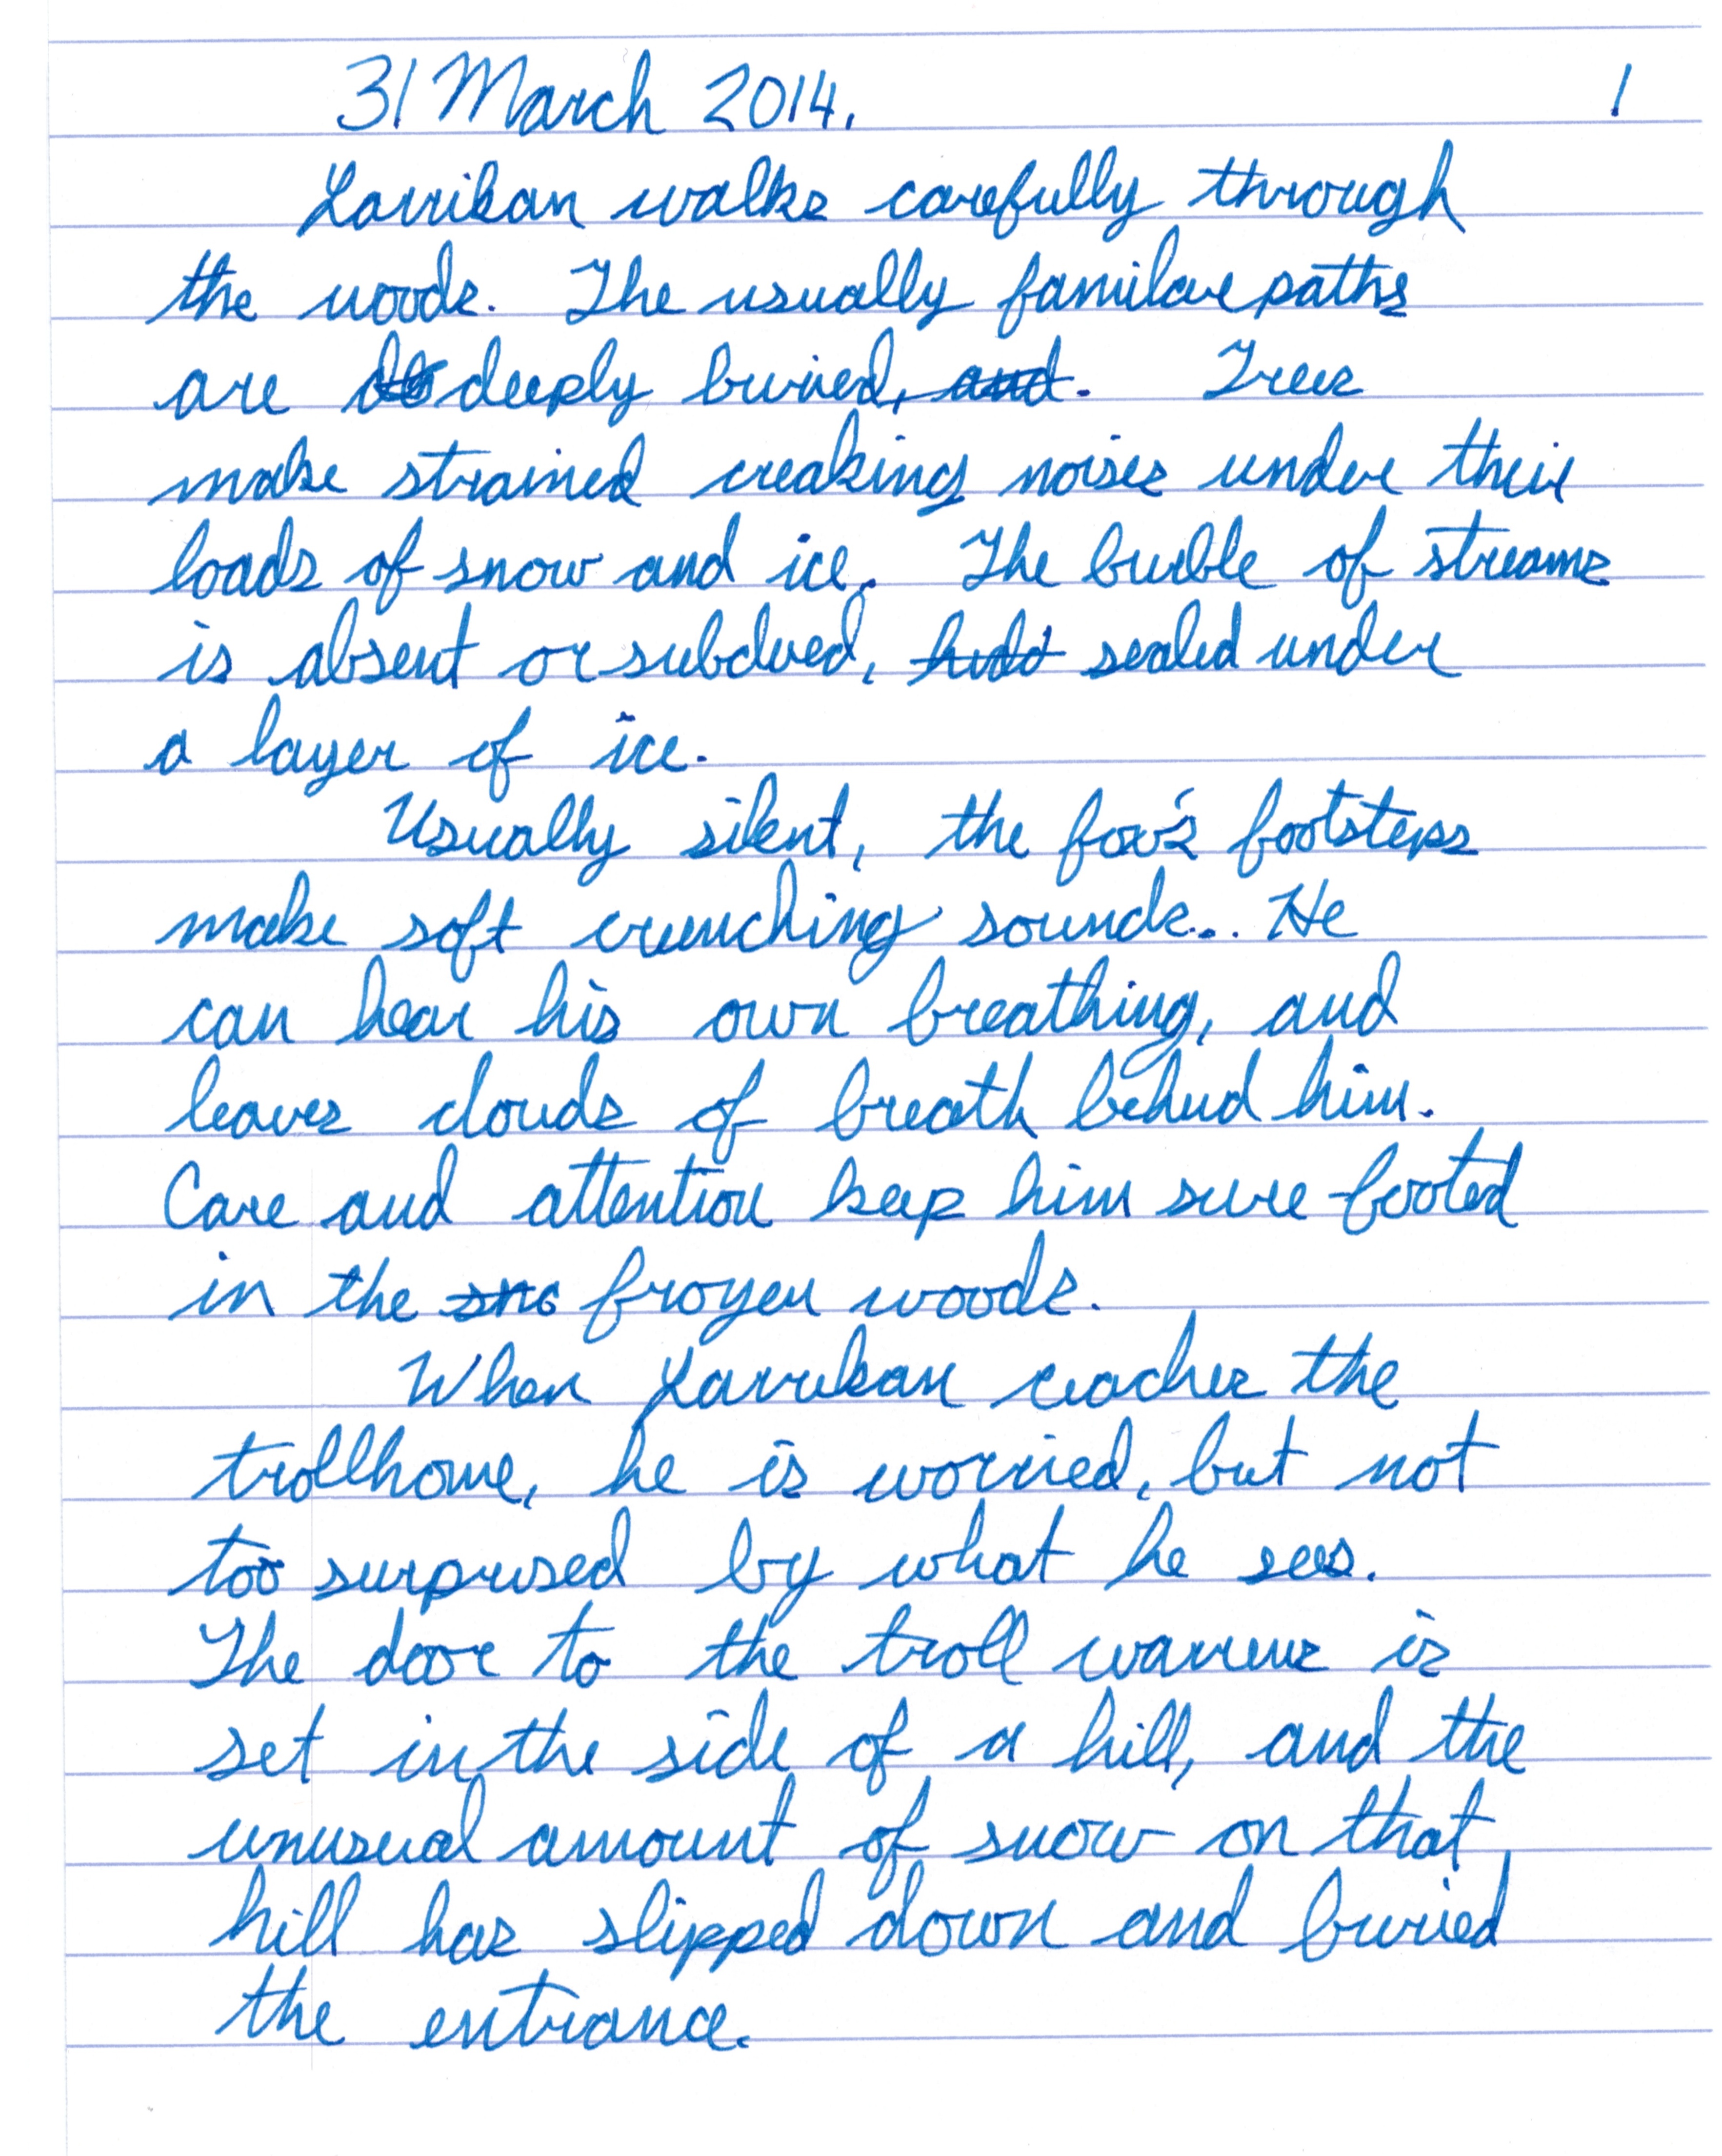 31 March 2014. 1
Larrikan walks carefully through
the woods. The usually familar paths
are deeply buried, and. Trees
make strained creaking noises under their
loads of snow and ice. The burble of streams
is absent or subdued, sealed under
a layer of ice.
Usually silent, the fox's footsteps
make soft crunching sounds... He
can hear his own breathing, and
leaves clouds of breath behind him.
Care and attention keep him sure-footed
in the sno frozen woods.
When Larrikan reaches the
trollhome, he is worried, but not
too surprised by what he sees.
The door to the troll warrens is
set in the side of a hill, and the
unusual amount of snow on that
hill has slipped down and buried
the entrance.